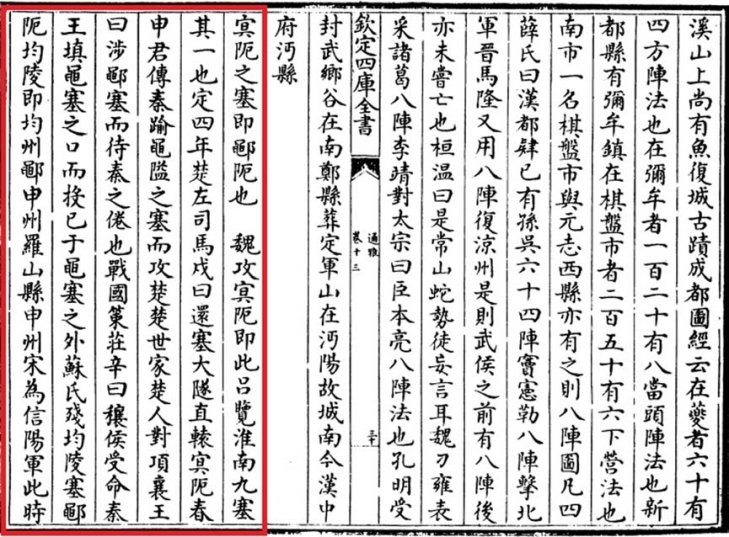 溪山上尚有魚復城古蹟成都圖經云在夔者六十有
四方陣法也在彌牟者一百二十有八當頭陣法也新
都縣有彌牟鎮在棋盤市者二百五十有六下營法也
南市一名棋盤市與元志西縣亦有之則八陣圖凡四
薛氏曰漢都肄已有孫吳六十四陣竇憲勒八陣擊北
軍晉馬隆又用八陣復涼州是則武侯之前有八陣後
亦未嘗亡也桓温曰是常山蛇勢徒妄言耳魏刁雍表
采諸葛八陣李靖對太宗曰臣本亮八陣法也孔明受
欽定四庫全書
通雅
卷十三
三十
封武鄉谷在南鄭縣葬定軍山在沔陽故城南今漢中
府沔縣
冥阨之塞即鄳阨也　魏攻冥阨即此呂覽淮南九塞
其一也定四年楚左司馬戌曰還塞大隧直轅冥阨春
申君傳秦踰黽隘之塞而攻楚楚世家楚人對項襄王
曰涉鄳塞而待秦之倦也戰國策莊辛曰穰侯受命秦
王填黽塞之口而投已于黽塞之外蘇氏殘均陵塞鄳
阨均陵即均州鄳申州羅山縣申州宋為信陽軍此時